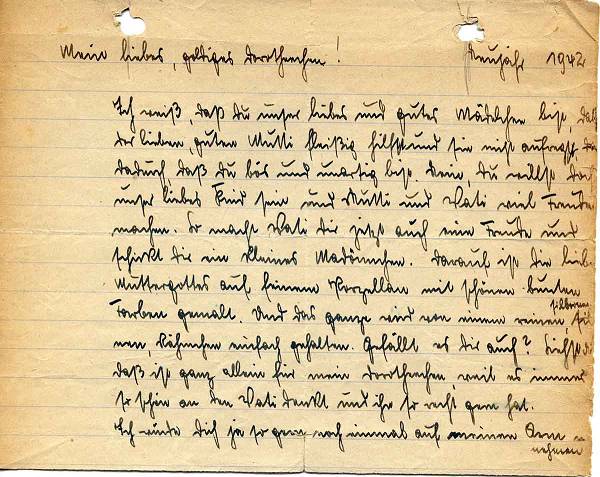 Mein liebes, goldiges Dorotheechen! Neujahr 1942
Ich weiß, daß Du unser liebes und gutes Mädelchen bist, daß
der lieben, guten Mutti fleißig hilfst und sie nicht aufregst,
dadurch daß du bös und unartig bist. Nein, Du willst doch
unser liebes Kind sein und Mutti und Vati viel Freude
machen. So macht Vati Dir jetzt auch eine Freude und
schickt Dir ein kleines Madönnchen. Darauf ist die liebe
Muttergottes auf feinem Porzellan mit schönen bunten
Farben gemalt. Und das ganze wird von einem reinen silbernen
Rähmchen einfach gehalten. Gefällt es Dir auch? Siehst du
daß ist ganz allein für mein Dorotheechen, weil es immer
so schön an den Vati denkt und ihn so recht gern hat.
Ich würde Dich ja so gern noch einmal auf meinen Arm
nehmen